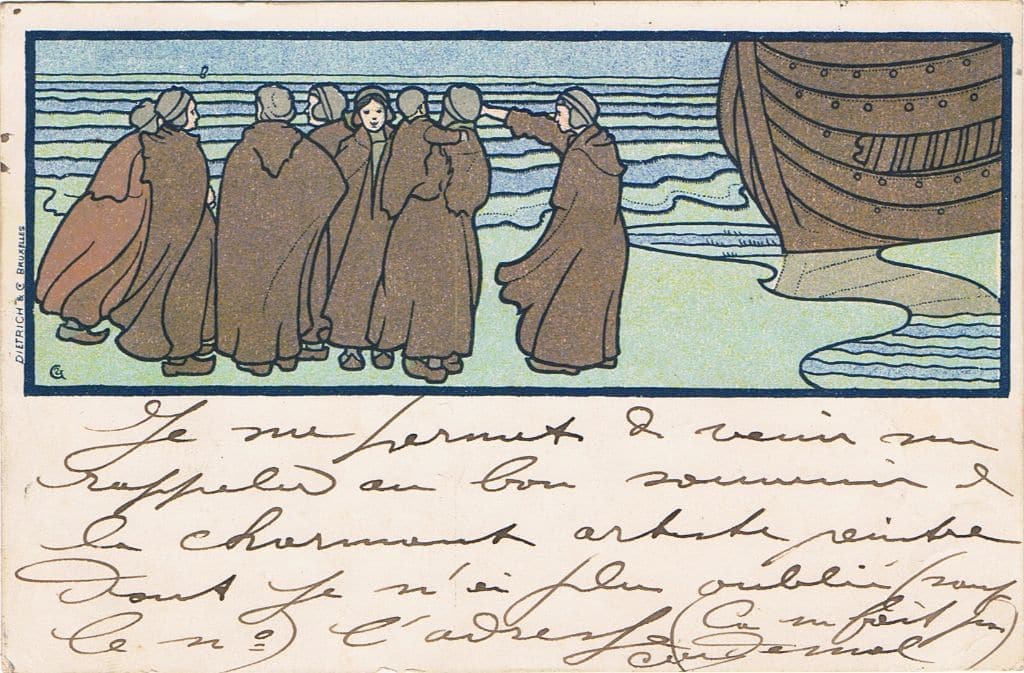 DIETRICH & Cº BRUXELLES
Je me permet de venir me
rappeler au bon souvenir de
la charmant artiste peintre
Dont je n'ai plu oublié (sauf
le nº) l'adresse (Ca fait
Demol